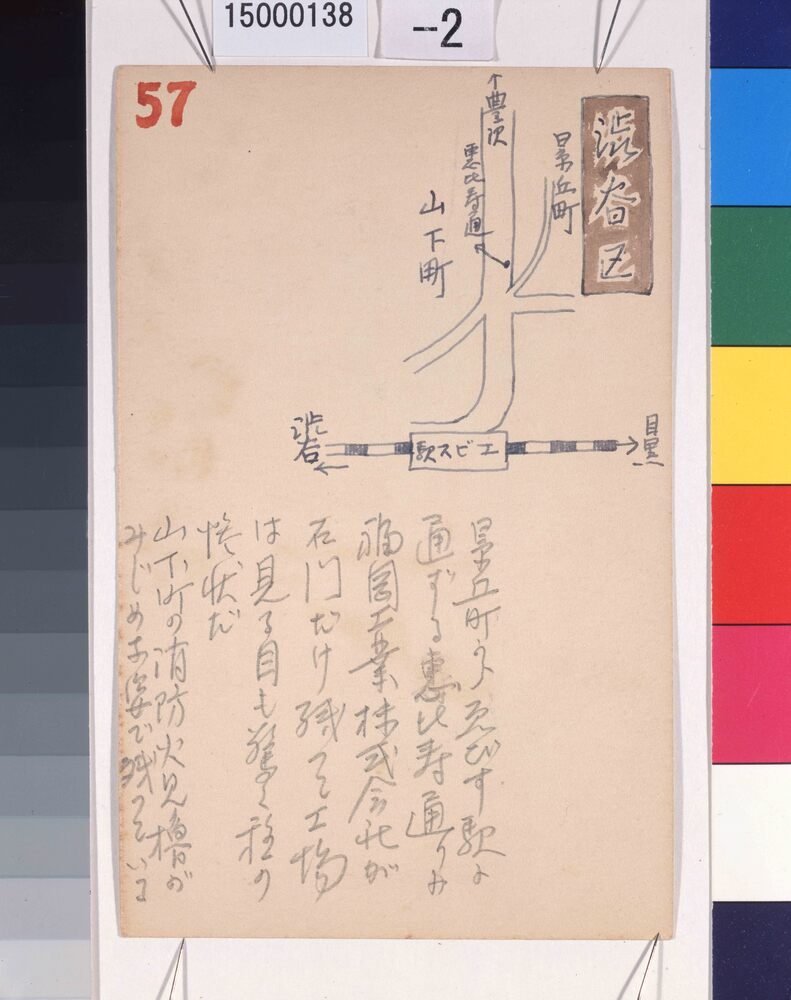 15000138
-2
57
渋谷区
景丘町
↑豊沢
恵比寿通り
山下町
渋谷
エビス駅
目黒
景丘町から ゑびす駅に
通ずる 恵比寿通りに
福岡工業株式会社が
石門だけ残って工場
は見る目も驚く程の
惨状だ
山下町の消防火見櫓が
みじめな姿で残っている